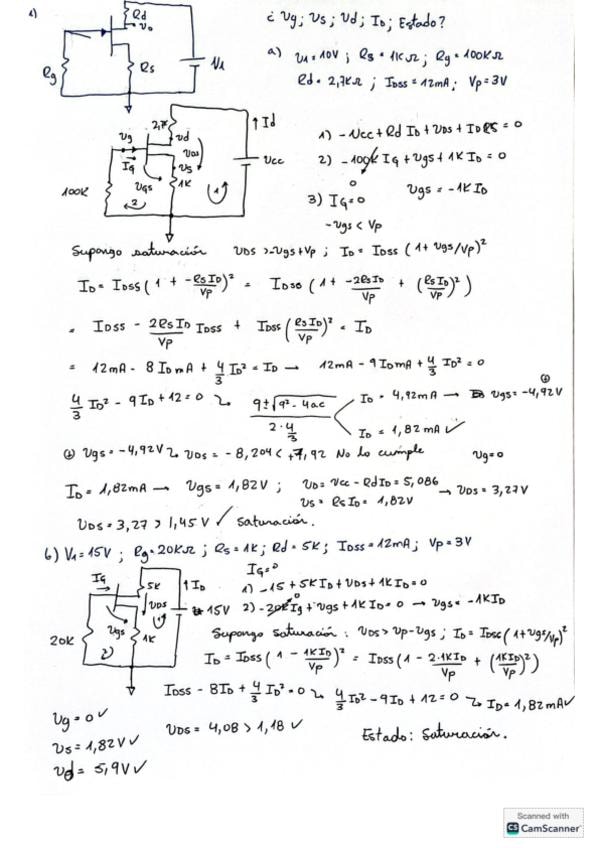 1)
Rd
Vo
Rg
Rs
V1
¿ Vg; Vs; Vd; ID; Estado?
a) V1=10V; Rs=1KΩ; Rg=100KΩ
Rd=2,7KΩ; IDSS=12mA; Vp=3V
2,7K
↑ Id
vg
vd
VDS
IG
vs
VGS
1K
Vcc
100K
2
1
1) -Vcc + Rd ID + VDS + ID RS = 0
2) -100K IG + VGS + 1K ID = 0
0
VGS = -1K ID
3) IG = 0
-VGS < Vp
Supongo saturación VDS > -VGS + Vp ; ID = IDSS (1 + VGS/Vp)²
ID = IDSS (1 + -RS ID/Vp)² = IDSS (1 + -2RS ID/Vp + (RS ID/Vp)²)
= IDSS - 2RS ID/Vp IDSS + IDSS (RS ID/Vp)² = ID
= 12mA - 8 ID mA + 4/3 ID² = ID → 12mA - 9 ID mA + 4/3 ID² = 0
4/3 ID² - 9ID + 12 = 0 9±√9²-4ac / 2·4/3
ID = 4,92mA → VGS = -4,92V
ID = 1,82mA ✓
VGS = -4,92V VDS = -8,204 < +7,92 No lo cumple
Vg=0
ID = 1,82mA → VGS = 1,82V ; VD = Vcc - Rd ID = 5,086
Vs = Rs ID = 1,82V
→ VDS = 3,27V
VDS = 3,27 > 1,45V ✓ saturación.
b) V1=15V ; Rg=20KΩ ; Rs=1K ; Rd=5K ; IDSS=12mA ; Vp=3V
IG
5K
↑ ID
VDS
15V
VGS
1K
20K
2
IG=0
1) -15 + 5K ID + VDS + 1K ID = 0
2) -20K Ig + VGS + 1K ID = 0 → VGS = -1K ID
0
Supongo saturación : VDS > Vp - VGS ; ID = IDSS (1 + VGS/Vp)²
ID = IDSS (1 - 1K ID/Vp)² = IDSS (1 - 2·1K ID/Vp + (1K ID/Vp)²)
IDSS - 8ID + 4/3 ID² = 0 4/3 ID² - 9ID + 12 = 0 ID = 1,82mA ✓
Vg = 0 ✓
Vs = 1,82V ✓
Vd = 5,9V ✓
VDS = 4,08 > 1,18 ✓
Estado: Saturación.
Scanned with
CS CamScanner